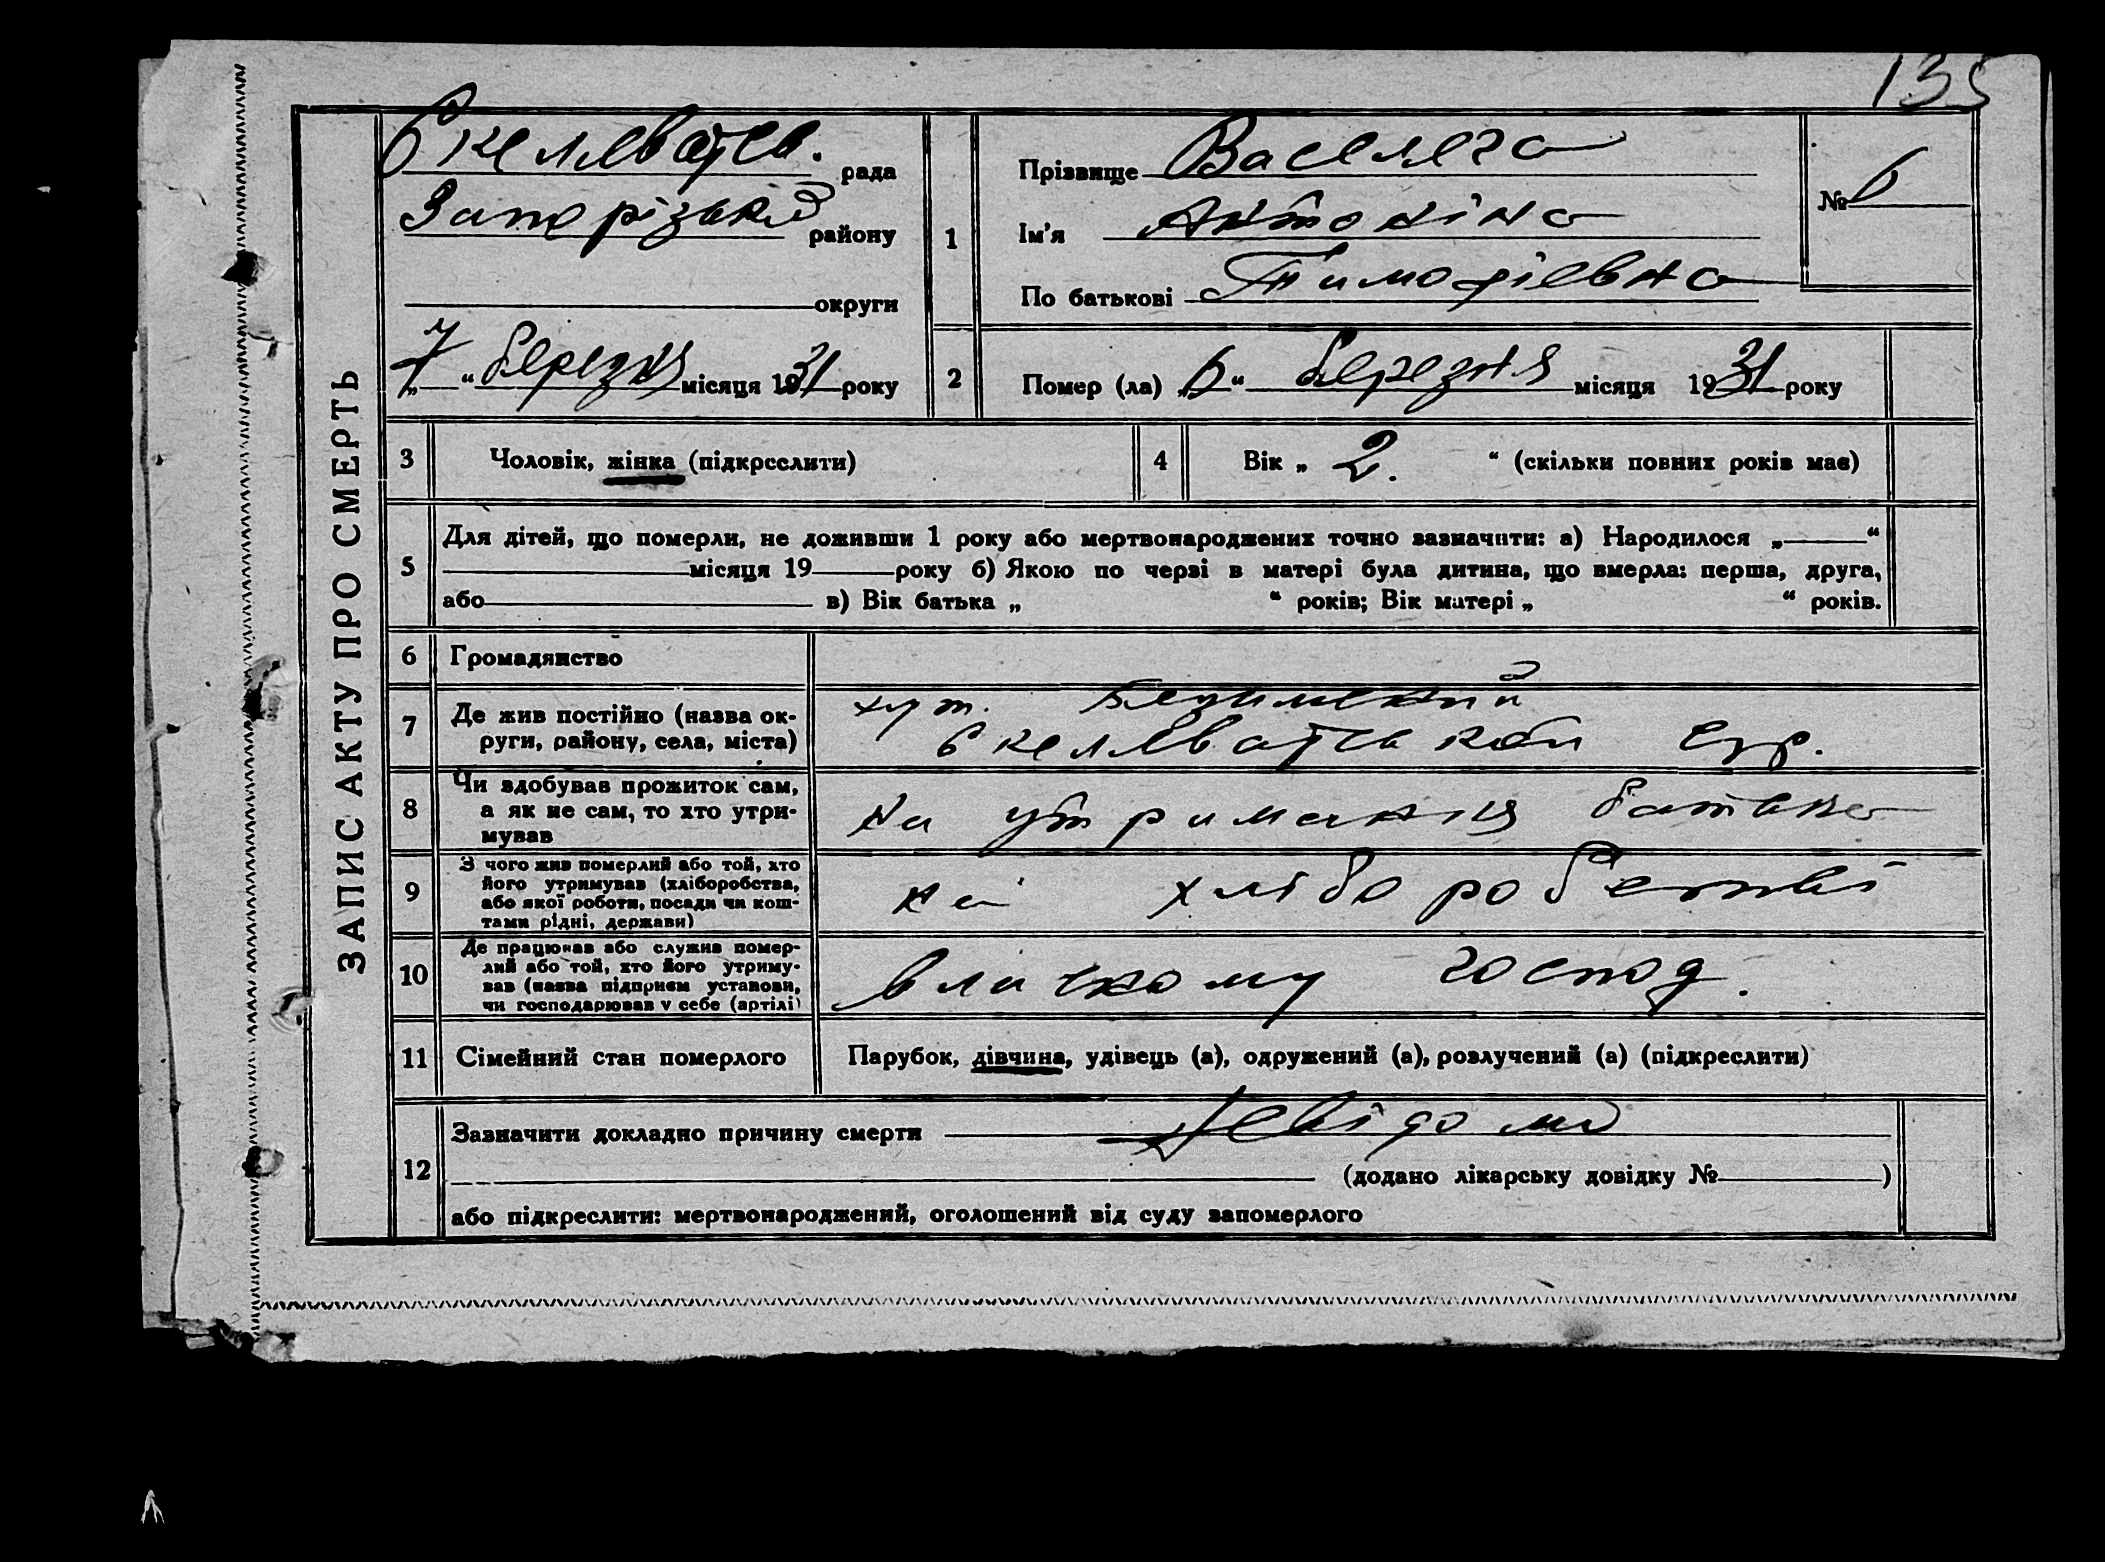 135
ЗАПИС АКТУ ПРО СМЕРТЬ
Скелеватсв. рада
Запорізький району
округи
„7“ березня місяця 1931 року
1
Прізвище Васелего
Ім’я Антоніна
По батькові Тимофієвна
№ 6
2
Помер (ла) „6“ березня місяця 1931 року
3 Чоловік, жінка (підкреслити)
4 Вік „ 2. “ (скільки повних років має)
5
Для дітей, що померли, не доживши 1 року або мертвонароджених точно зазначити: а) Народилося „ “
місяця 19 року б) Якою по черзі в матері була дитина, що вмерла: перша, друга,
або в) Вік батька „ “ років; Вік матері „ “ років.
6 Громадянство
7
Де жив постійно (назва ок-
руги, району, села, міста)
хут.
Скелеватської с/р.
8
Чи здобував прожиток сам,
а як не сам, то хто утри-
мував
На утримання батька
9
З чого жив померлий або той, хто
його утримував (хліборобства,
або якої роботи, посади чи кош-
тами рідні, держави)
на хліборобстві
10
Де працював або служив помер-
лий або той, хто його утриму-
вав (назва підприєм установи,
чи господарював у себе (артілі)
влаченому господ.
11 Сімейний стан померлого
Парубок, дівчина, удівець (а), одружений (а), розлучений (а) (підкреслити)
12
Зазначити докладно причину смерти Невідомо
(додано лікарську довідку № )
або підкреслити: мертвонароджений, оголошений від суду запомерлого